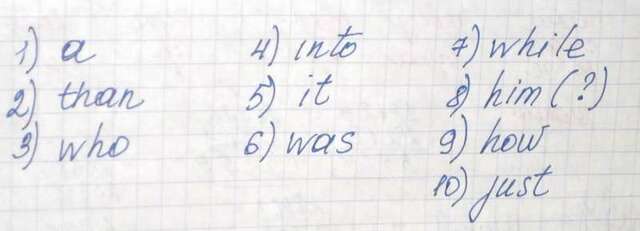 1) a
2) than
3) who
4) into
5) it
6) was
7) while
8) him (?)
9) how
10) just